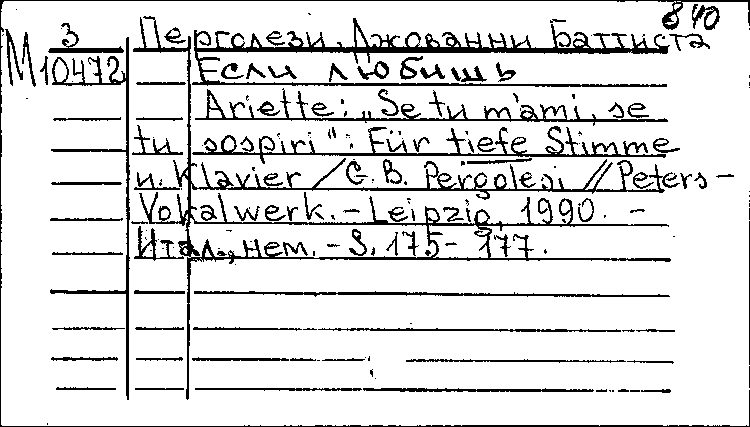 840
З Перголези, Джованни Баттиста
М 10472 Если любишь
Ariette: „Se tu m'ami, se
tu sospiri": Für tiefe Stimme
u. Klavier / G. B. Pergolesi // Peters-
Vokalwerk. - Leipzig, 1990. -
Итал., нем. - S. 175-177.